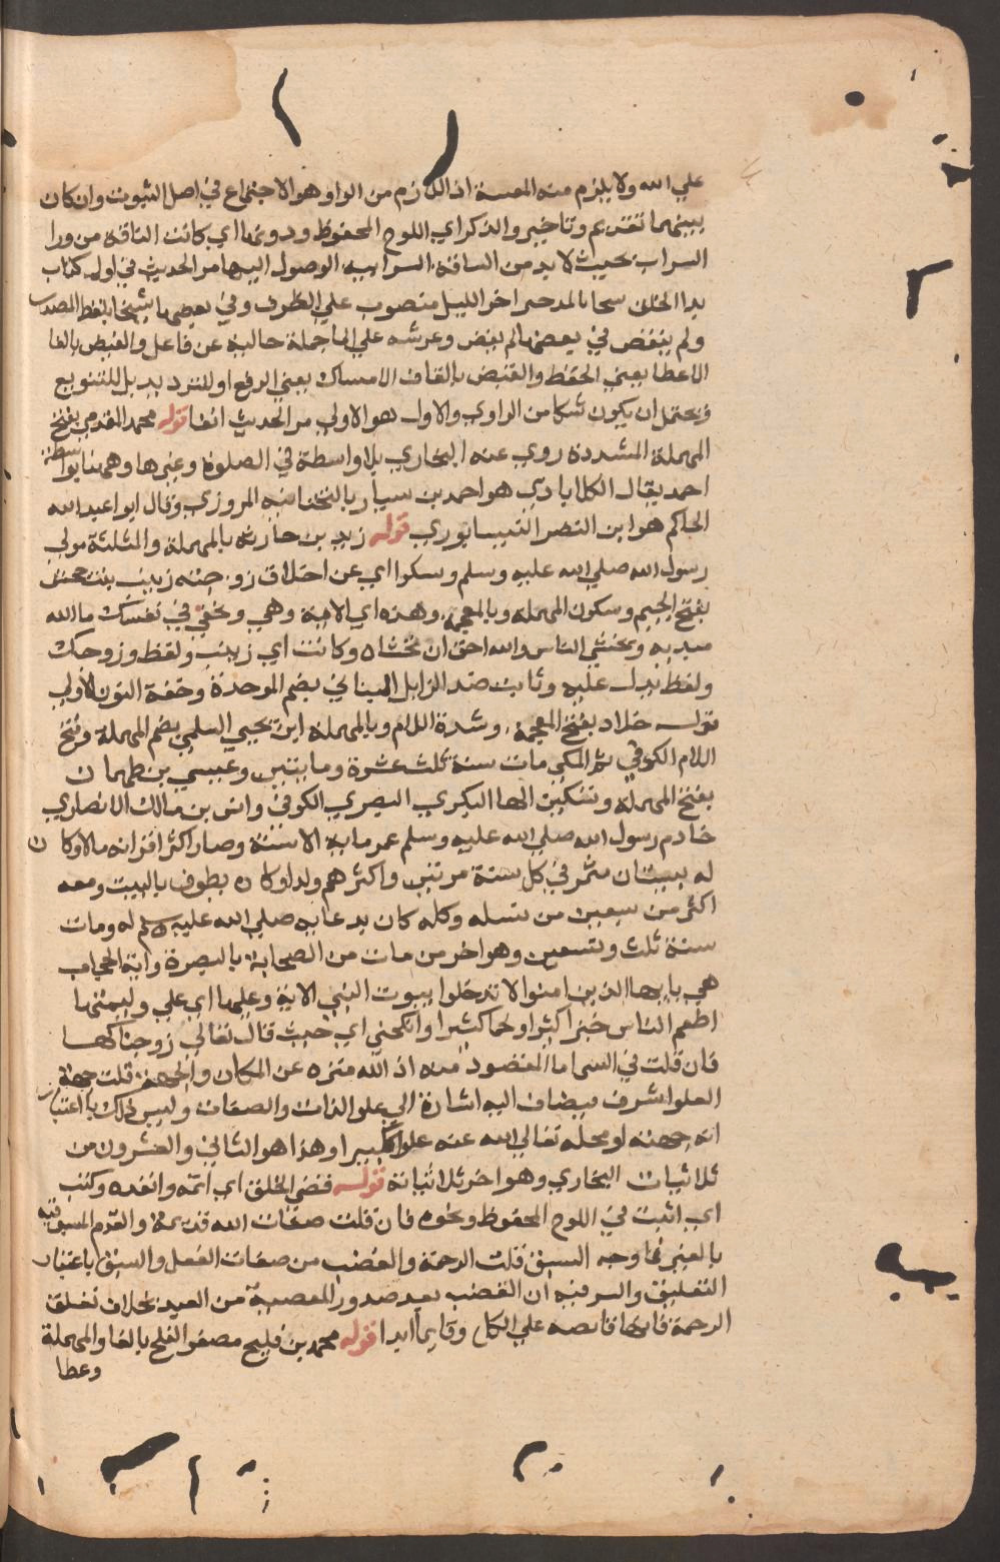 علي الله ولا يلزم منه المعية اذ اللازم من الواو هو الاجتماع في اصل الثبوت وان كان
بينهما تقديم وتاخير والذكر اي اللوح المحفوظ ودونها اي كانت الناقة من ورا
السراب بحيث لا بد من المسافة السرابية الوصول اليها مر الحديث في اول كتاب
بدا الخلق سحا بالمد اخر الليل منصوب علي الظرف وفي بعضها شيخا بلفظ المصدر
ولم ينقص في بعضها لم يغض وعرشه علي الما جملة حالية عن فاعل والفيض بالفا
الاعطا بمعني الحفظ والقبض بالقاف الامساك بمعني الرفع او للترديد بل للتنويع
ويحتمل ان يكون شكا من الراوي والاول هو الاولي مر الحديث انفا قوله محمد المقدمي بفتح
المهملة المشددة روي عنه البخاري بلا واسطة في الصلوة وغيرها وههنا بواسطة
احمد يقال الكلاباذي هو احمد بن سيار بالتحتانية المروزي وقال ابو عبد الله
الحاكم هو ابن النصر النيسابوري قوله زيد بن حارثة بالمهملة والمثلثة مولي
رسول الله صلي الله عليه وسلم وسكوا اي عن اخلاق زوجته زينب بنت جحش
بفتح الجيم وسكون المهملة وبالمعجمة وهذه اي الاية وهي وتخفي في نفسك ما الله
مبديه وتخشي الناس والله احق ان تخشاه وكانت اي زينب ولفظ وزوجك
ولفظ يدل عليه وثابت ضد الزايل البناني بضم الموحدة وخفة النون الاولي
قوله خلاد بفتح المعجمة وشدة اللام وبالمهملة ابن يحيي السلمي بضم المهملة وفتح
اللام الكوفي ثم المكي مات سنة ثلث عشرة ومايتين وعيسي بن طهمان
بفتح المهملة وتسكين الها البكري البصري الكوفي وانس بن مالك الانصاري
خادم رسول الله صلي الله عليه وسلم عمر ماية الا سنة وصار اكثر اقرانه مالا وكان
له بستان مثمر في كل سنة مرتين واكثرهم ولدا وكان يطوف بالبيت ومعه
اكثر من سبعين من نسله وكله كان بدعايه صلي الله عليه وسلم له ومات
سنة ثلث وتسعين وهو اخر من مات من الصحابة بالبصرة واية الحجاب
هي يايها الذين امنوا لا تدخلوا بيوت النبي الاية وعليها اي علي وليمتها
اطعم الناس خبزا كثيرا ولحما كثيرا وانكحني اي حيث قال تعالي زوجناكها
فان قلت في السما ما المقصود منه اذ الله منزه عن المكان والجهة قلت جهة
العلو اشرف فيضاف اليه اشارة الي علو الذات والصفات وليس ذلك باعتبار
انه جهته او محله تعالي الله عنه علوا كبيرا وهذا هو الثاني والعشرون من
ثلاثيات البخاري وهو اخر ثلاثياته قوله قضي الخلق اي اتمه وانفذه وكتب
اي اثبت في اللوح المحفوظ ونحوه فان قلت صفات الله قديمة والقدم المسبوقية
بالغير فما وجه السبق قلت الرحمة والغضب من صفات الفعل والسبق باعتبار
التعليق والسر فيه ان الغضب بعد صدور المعصية من العبد بخلاف تعلق
الرحمة فانها فايضه علي الكل وقايما ابدا قوله محمد بن فليح مصغر الفلح بالفا والمهملة
وعطا